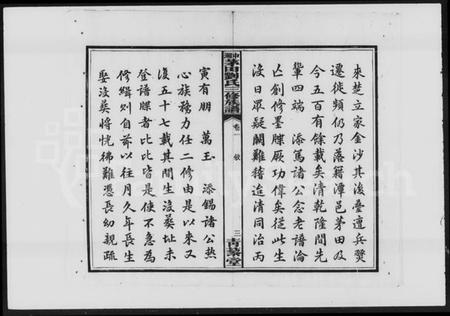 來楚立家金沙其後疊遭兵燹
遷徙頻仍乃落籍潭邑茅田及
今五百有餘載矣清乾隆間先
鞏四端 添篤諸公念老譜淪
亡創修墨牒厥功偉矣從此生
沒日眾疑闕難稽迨清同治丙
中湘茅田劉氏三修族譜
卷一
敘
三
青藜堂
寅有朋 萬玉 添錫諸公熱
心族務力任二修由是以來又
復五十七載其間生沒葬址未
登譜牒者比比皆是使不急為
修緝則自茲以往月久年長生
娶沒葬將恍彿難憑長幼親疏